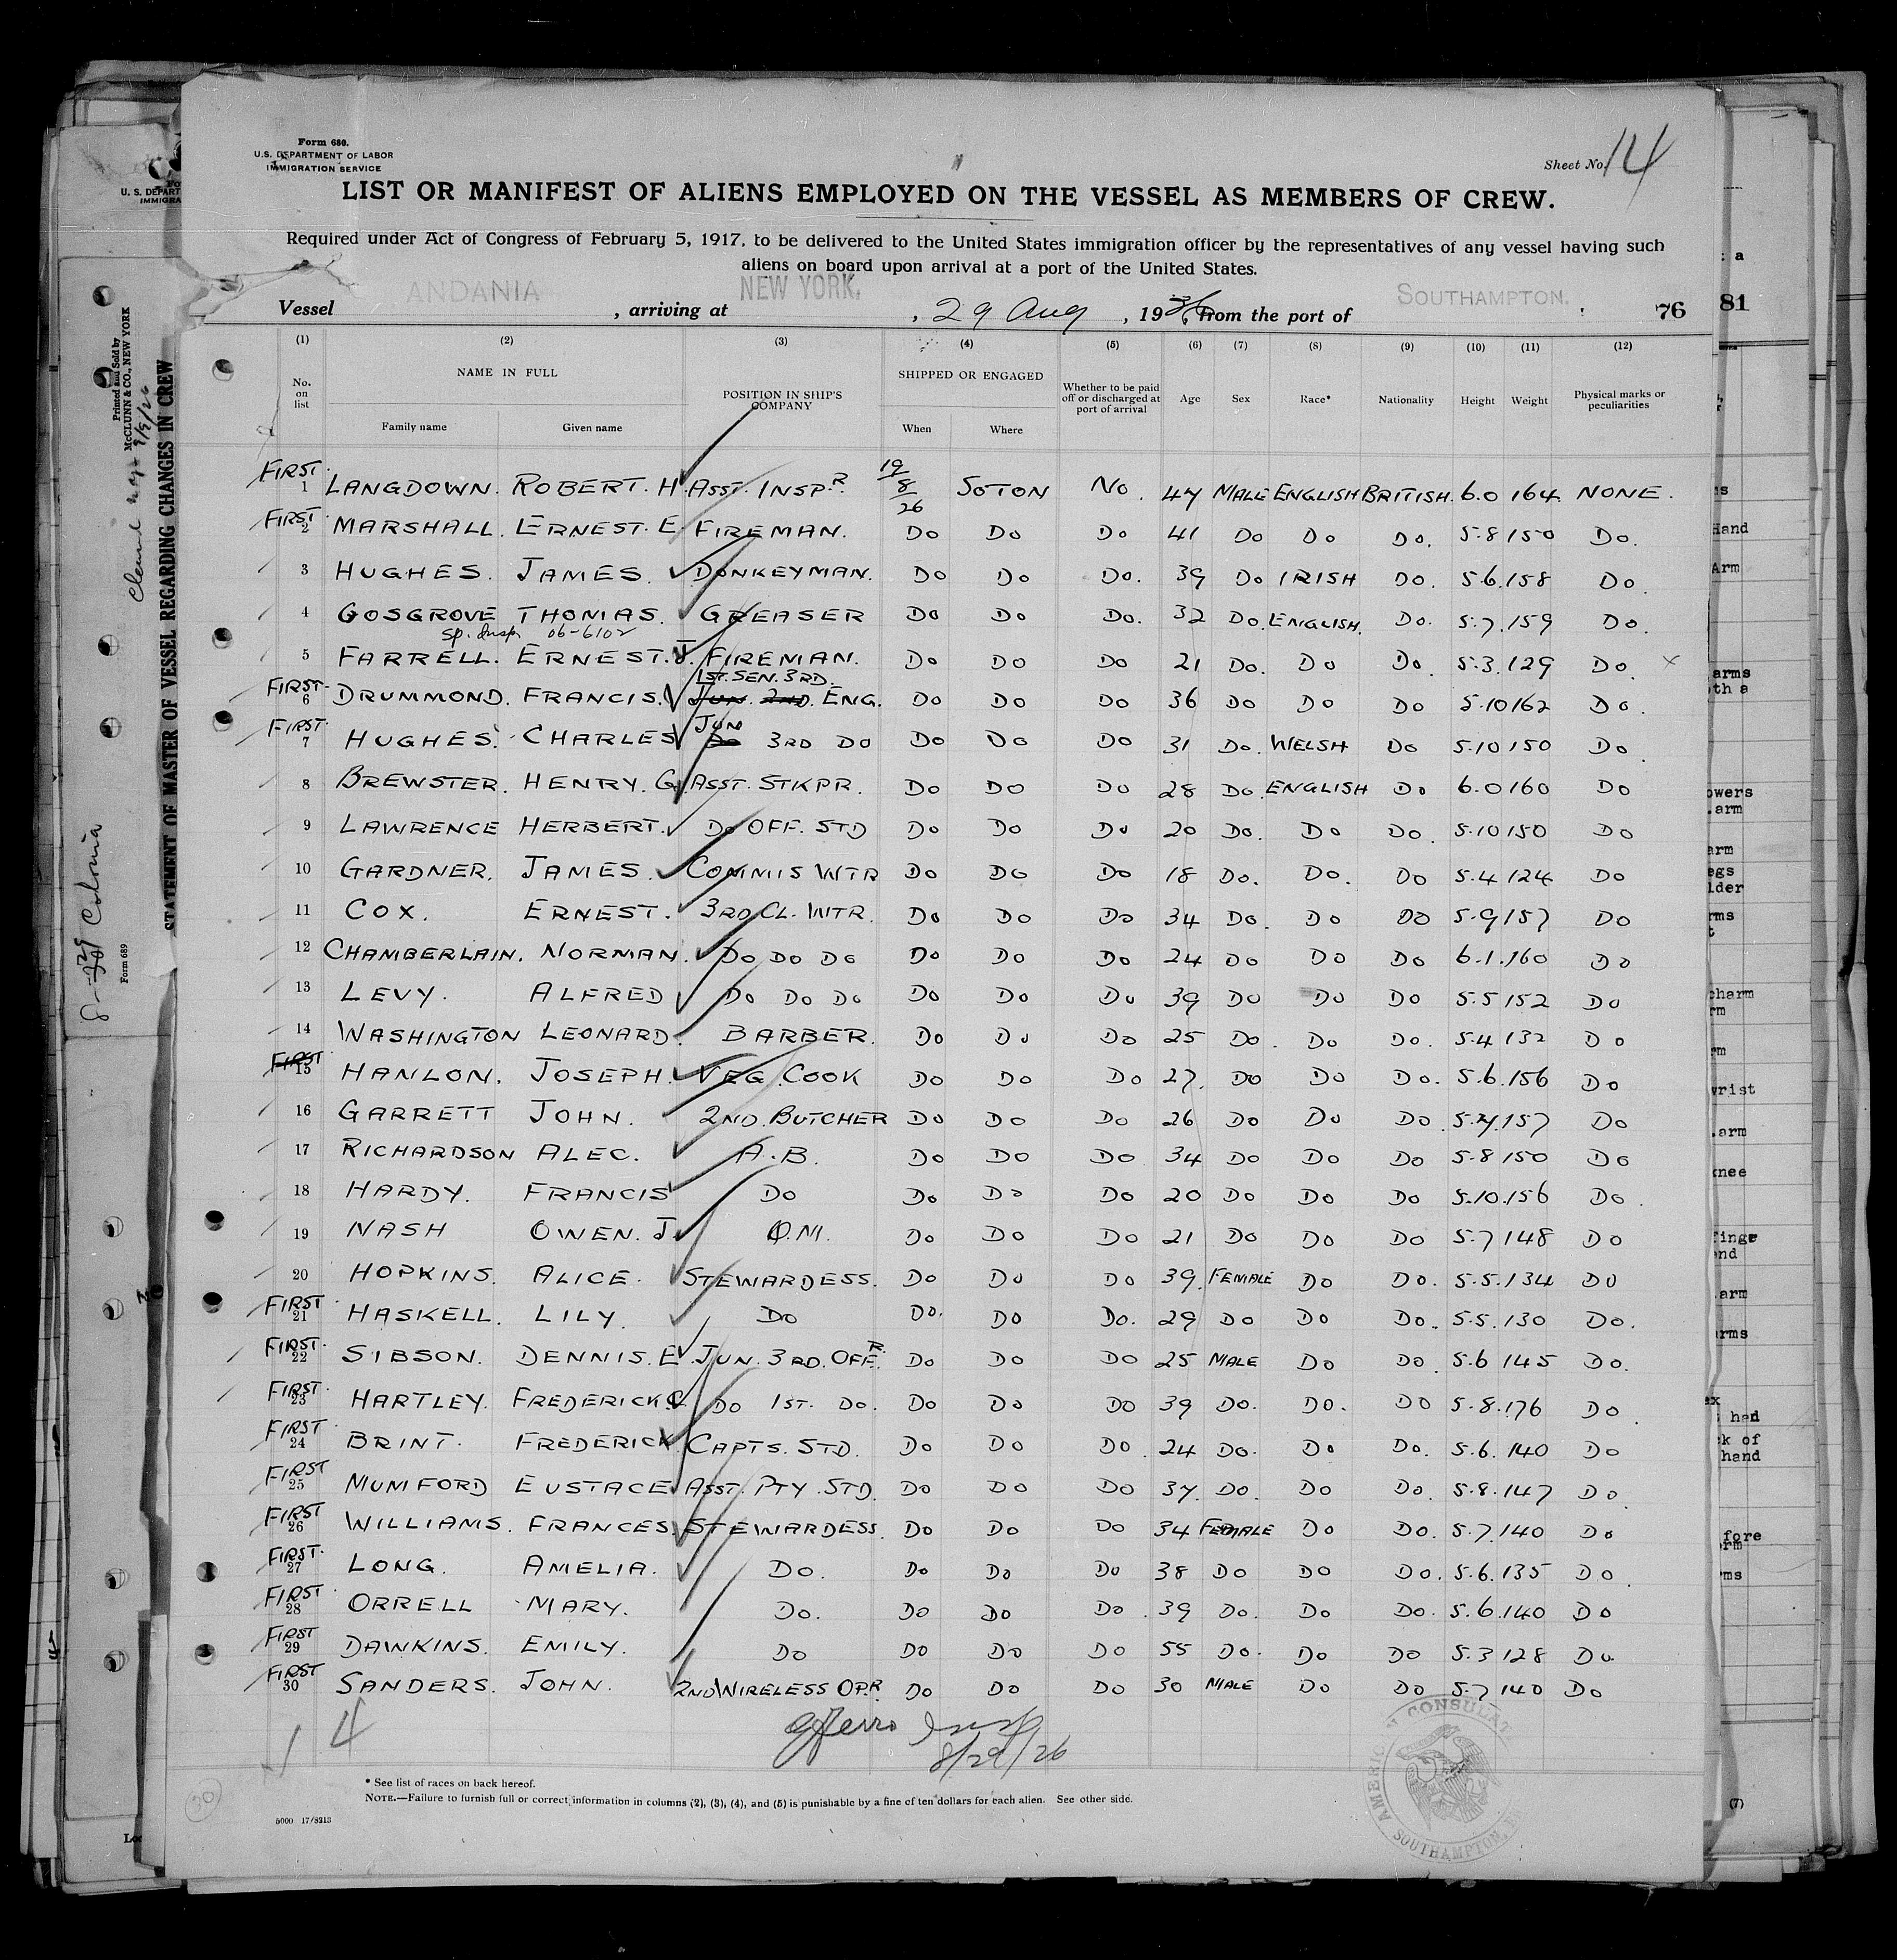 Form 680.
U.S. DEPARTMENT OF LABOR
IMMIGRATION SERVICE
Sheet No. 14
LIST OR MANIFEST OF ALIENS EMPLOYED ON THE VESSEL AS MEMBERS OF CREW.
Required under Act of Congress of February 5, 1917, to be delivered to the United States immigration officer by the representatives of any vessel having such
aliens on board upon arrival at a port of the United States.
Vessel ANDANIA, arriving at NEW YORK, 29 Aug, 1926, from the port of SOUTHAMPTON. 76
(1) (2) (3) (4) (5) (6) (7) (8) (9) (10) (11) (12)
No. on list NAME IN FULL Family name Given name POSITION IN SHIP'S COMPANY SHIPPED OR ENGAGED When Where Whether to be paid off or discharged at port of arrival Age Sex Race* Nationality Height Weight Physical marks or peculiarities
FIRST 1 LANGDOWN. ROBERT. H. ASST. INSPR. 19/8/26 SOTON NO. 47 MALE ENGLISH BRITISH. 6.0 164. NONE.
FIRST 2 MARSHALL. ERNEST. E. FIREMAN. DO DO DO 41 DO DO DO. 5.8 150 DO.
3 HUGHES. JAMES. DONKEYMAN. DO DO DO. 39 DO IRISH DO. 5.6. 158 DO
4 GOSGROVE THOMAS. GREASER DO DO DO. 32 DO. ENGLISH. DO. 5.7. 159 DO.
Sp. Insp. 06-6102
5 FARRELL. ERNEST. J. FIREMAN. DO DO DO 21 DO. DO DO. 5.3. 129 DO. x
1ST. SEN. 3RD.
FIRST 6 DRUMMOND. FRANCIS. JUN. 2ND. ENG. DO DO DO 36 DO DO DO 5.10 162 DO.
JUN
FIRST 7 HUGHES. CHARLES DO 3RD DO DO DO DO 31 DO. WELSH DO 5.10 150 DO.
8 BREWSTER. HENRY. G. ASST. STKPR. DO DO DO 28 DO. ENGLISH DO 6.0 160 DO
9 LAWRENCE HERBERT. DO OFF. STD DO DO DO 20 DO. DO DO. 5.10 150 DO
10 GARDNER. JAMES. COMMIS WTR DO DO DO 18 DO. DO. DO 5.4. 124 DO
11 COX. ERNEST. 3RD CL. WTR. DO DO DO 34 DO. DO DO 5.9 157 DO
12 CHAMBERLAIN. NORMAN. DO DO DO DO DO DO 24 DO DO DO 6.1. 160 DO
13 LEVY. ALFRED DO DO DO DO DO DO 39 DO DO DO 5.5 152 DO
14 WASHINGTON LEONARD. BARBER. DO DO DO 25 DO. DO DO. 5.4 132 DO
FIRST 15 HANLON. JOSEPH. VEG. COOK DO DO DO 27. DO DO DO. 5.6. 156 DO
16 GARRETT JOHN. 2ND. BUTCHER DO DO DO 26 DO DO DO. 157 DO
17 RICHARDSON ALEC. A.B. DO DO DO 34 DO DO DO 5.8 150 DO
18 HARDY. FRANCIS DO DO DO DO 20 DO DO DO 5.10. 156 DO.
19 NASH OWEN. J. Q.M. DO DO DO 21 DO DO DO 5.7 148 DO
20 HOPKINS. ALICE. STEWARDESS. DO DO DO 39. FEMALE DO DO. 5.5. 134 DO
FIRST 21 HASKELL. LILY. DO DO. DO DO. 29 DO DO DO. 5.5. 130 DO.
FIRST. 22 SIBSON. DENNIS. E. JUN. 3RD. OFFR. DO DO DO 25 MALE DO DO. 5.6 145 DO.
FIRST. 23 HARTLEY. FREDERICK. C. DO 1ST. DO. DO DO DO 39 DO. DO. DO 5.8. 176 DO.
FIRST 24 BRINT. FREDERICK CAPTS. STD. DO DO DO. 24 DO. DO DO. 5.6. 140 DO
FIRST 25 MUMFORD EUSTACE ASST. PTY. STD. DO DO DO 37. DO. DO DO. 5.8. 147 DO.
FIRST 26 WILLIAMS. FRANCES. STEWARDESS. DO DO DO 34 FEMALE DO DO. 5.7. 140 DO
FIRST. 27 LONG. AMELIA. DO. DO DO DO 38 DO DO DO. 5.6. 135 DO.
FIRST 28 ORRELL MARY. DO. DO DO DO. 39 DO. DO DO. 5.6. 140 DO
FIRST 29 DAWKINS. EMILY. DO DO DO DO 55 DO. DO DO 5.3 128 DO.
FIRST 30 SANDERS. JOHN. 2ND WIRELESS OPR. DO DO DO 30 MALE DO DO 5.7 140 DO
14
Ferro Insp
8/29/26
AMERICAN CONSULATE
SOUTHAMPTON,
30
* See list of races on back hereof.
NOTE.—Failure to furnish full or correct information in columns (2), (3), (4), and (5) is punishable by a fine of ten dollars for each alien. See other side.
5000 17/8213
U. S. DEPART
IMMIGRA
Printed and Sold by
McCLUNN & CO., NEW YORK
STATEMENT OF MASTER OF VESSEL REGARDING CHANGES IN CREW
Form 689
Colonia
81
Hand
Arm
arms
oth a
owers
.arm
arm
egs
lder
rms
charm
rm
wrist
.arm
knee
finge
end
.arm
arms
had
k of
hand
fore
rm
rms
(7)